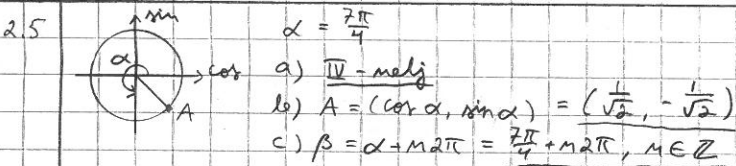 2.5
sin
α = 7π/4
α
cos
a) IV - nelj
A
b) A = (cos α, sin α) = (1/√2, -1/√2)
c) β = α + n2π = 7π/4 + n2π, n ∈ ℤ